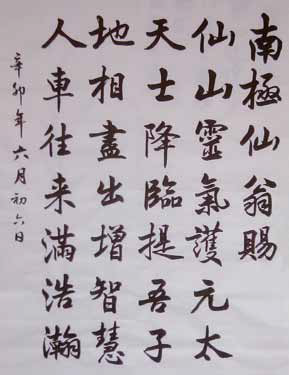 南極仙翁賜
仙山靈氣護元太
天士降臨提吾子
地相盡出增智慧
人車往来滿浩瀚
辛卯年六月初六日